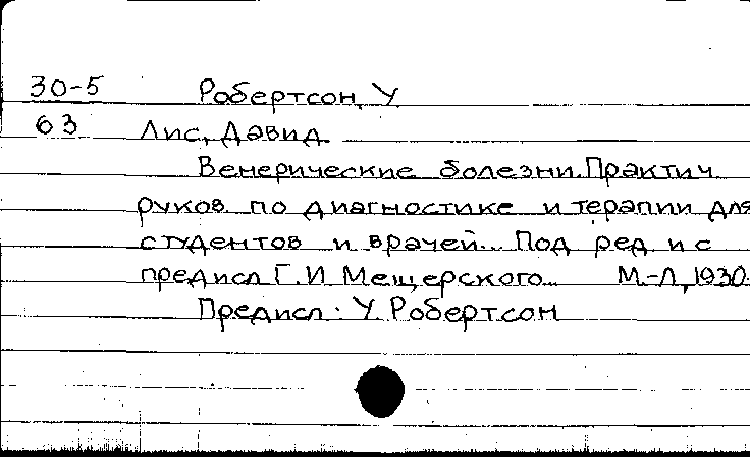 30-5 Робертсон, У
63 Лис, Давид
Венерические болезни. Практич
руков по диагностике и терапии для
студентов и врачей... Под ред и с
предисл Г.И Мещерского... М.-Л, 1930.
Предисл: У. Робертсон